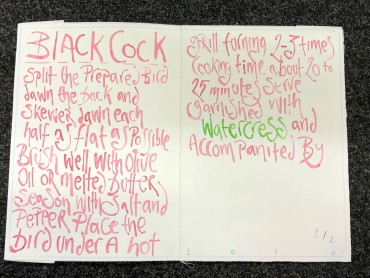 BLACK COCK
Split the Prepared Bird
down the back and
Skevier down each
half as flat as possible
Brush well with olive
Oil or melted butter
Season with salt and
PePPER Place the
bird under A hot
grill turning 2-3 times
Cooking time about 20 to
25 minutes Serve
garnished with
Watercress and
Accompanited By
2/2